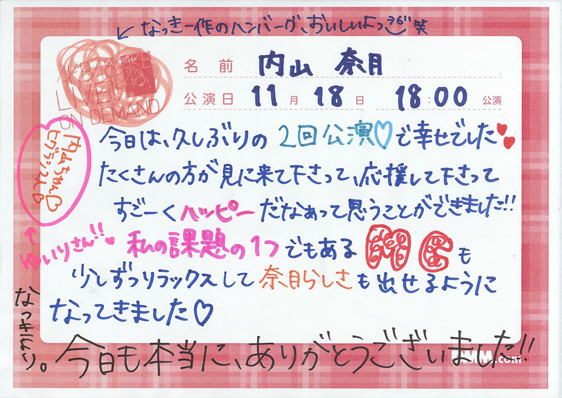 なっきー作のハンバーグ、おいしいよっ 笑
AKB48 LIVE!! ON DEMAND
名前 内山 奈月
公演日 11月18日 18:00 公演
今日は、久しぶりの2回公演♡で幸せでした♥♥
たくさんの方が見に来て下さって、応援して下さって
すごーくハッピーだなぁって思うことができました!!
私の課題の1つでもあるMCも
少しずつリラックスして奈月らしさも出せるように
なってきました♡
ゆいりさん!!
なっきより。
今日も本当に、ありがとうございました!!
.com